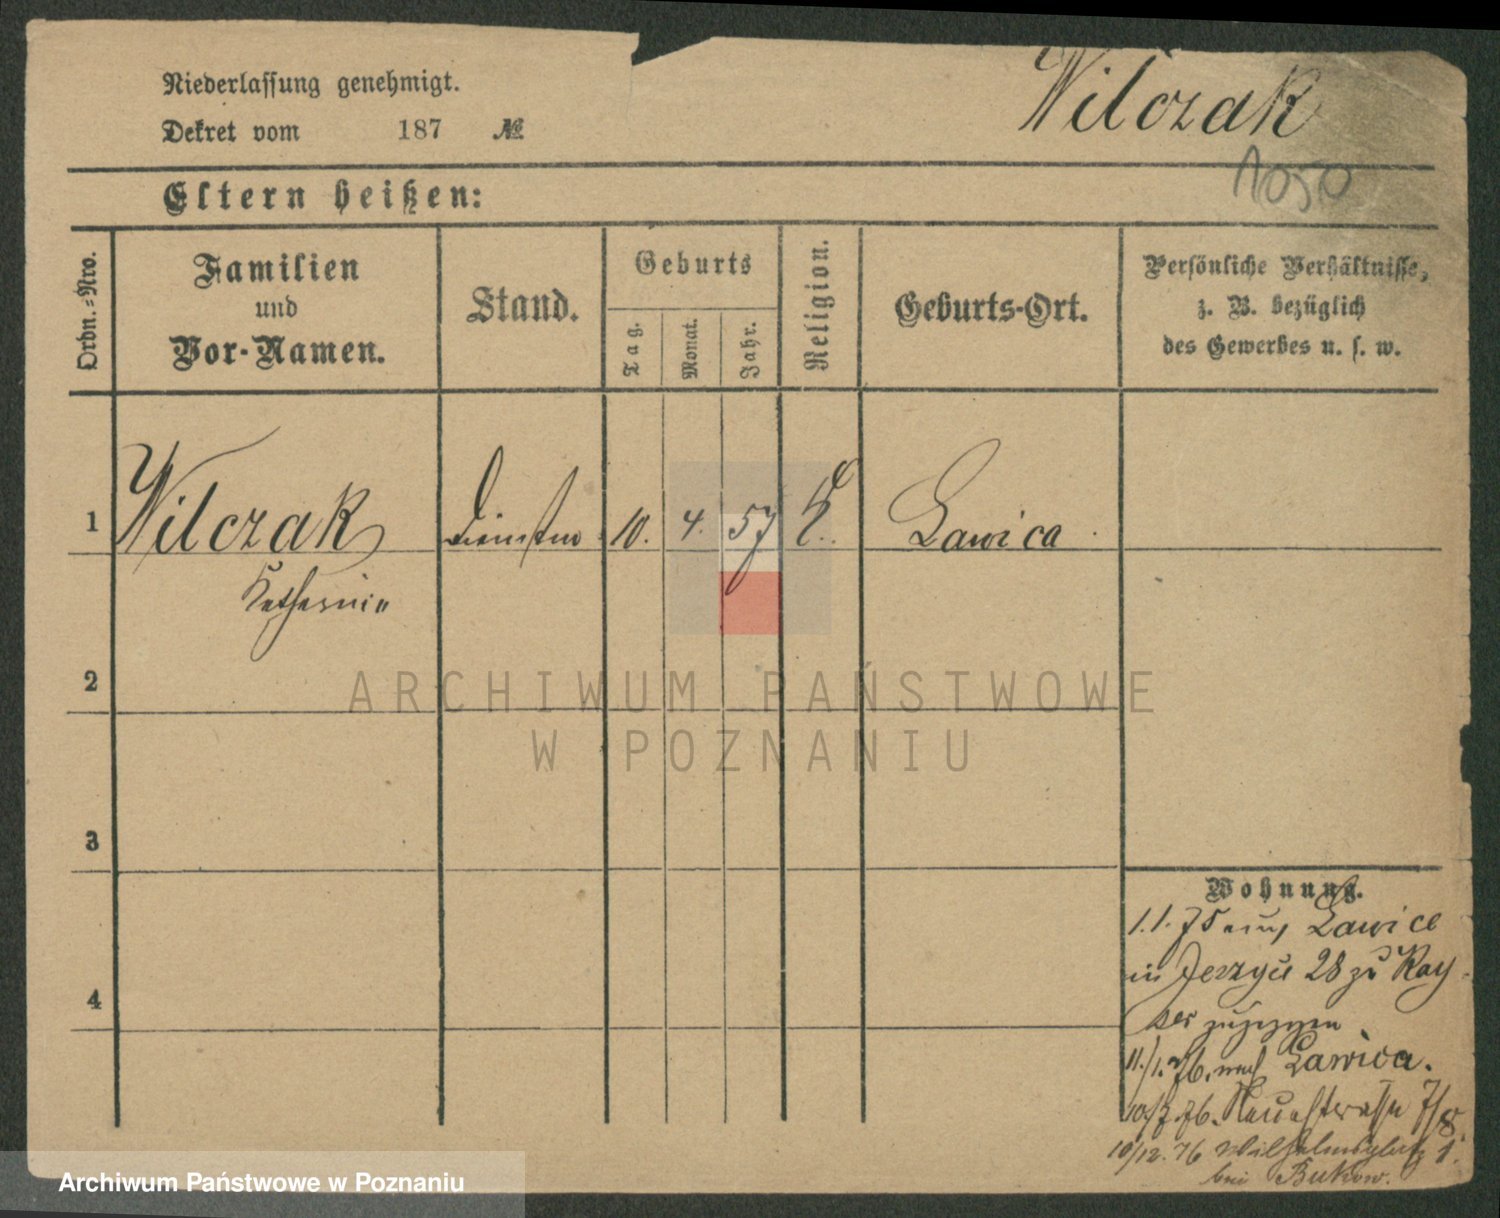 Niederlassung genehmigt.
Wilczak
Dekret vom 187 №
1050
Eltern heißen:
Ordn.-Nro.
Familien
und
Vor-Namen.
Stand.
Geburts
Tag.
Monat.
Jahr.
Religion.
Geburts-Ort.
Persönliche Verhältnisse,
z. B. bezüglich
des Gewerbes u. s. w.
1 Wilczak 10. 4. 57 Lawica
2
3
4
Wohnung.
1.1.75 aus Lawice
in Jerzyce 28 zu Kay
ser zugezogen
11./1.76. nach Lawica.
Neuestrasse 7/8
10/12.76 Wilhelmsplatz 1.
bei Bukow.
ARCHIWUM PAŃSTWOWE
W POZNANIU
Archiwum Państwowe w Poznaniu